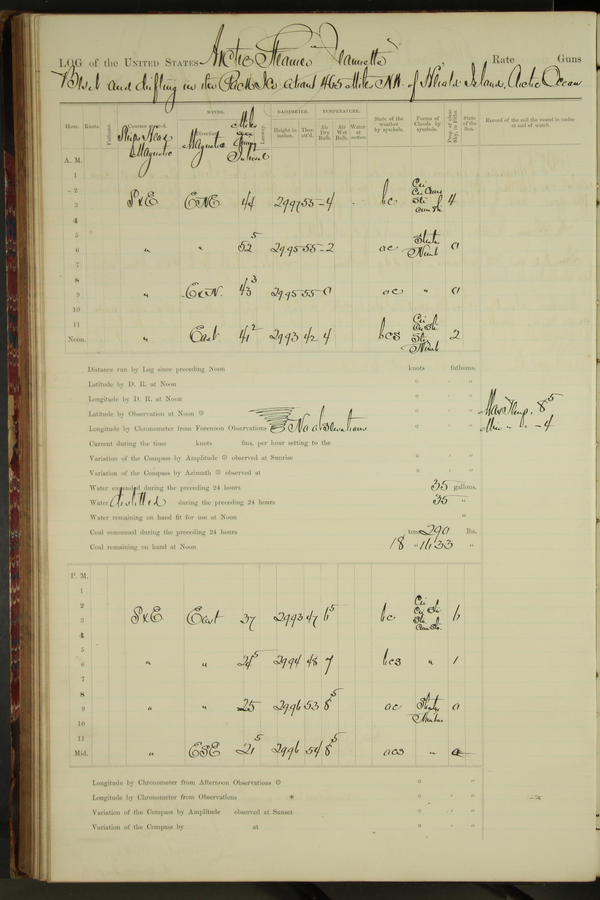 LOG of the UNITED STATES Arctic Steamer "Jeannette" Rate Guns
Beset and drifting in the Pack Ice, about 465 Miles N.W. of Herald Island, Arctic Ocean
Hour. Knots. Fathoms. Courses steered. WINDS. Direction BAROMETER. Height in inches. Ther. att'd. TEMPERATURE. Air Dry Bulb. Air Wet Bulb. Water at surface. State of the weather by symbols. Forms of Clouds by symbols. Prop. of clear Sky, in 10ths. State of the Sea. Record of the sail the vessel is under at end of watch.
Ship's Head Magnetic Magnetic Interval
A. M.
1
2
3 SxE ENE 44 29 97 55 -4 bc Cu 4
4
5
6 " " 52 5 29 95 55 -2 oc 0
7
8
9 " ExN. 43 3 29 95 55 0 oc " 0
10
11
Noon. " East 41 2 29 93 42 4 bcs 2
Distance run by Log since preceding Noon knots fathoms.
Latitude by D. R. at Noon
Longitude by D. R. at Noon Max Temp. 8 5
Latitude by Observation at Noon Min " " -4
Longitude by Chronometer from Forenoon Observations No observations
Current during the time knots fms. per hour setting to the
Variation of the Compass by Amplitude observed at Sunrise
Variation of the Compass by Azimuth observed at
Water expended during the preceding 24 hours 35 gallons.
Water distilled during the preceding 24 hours 35 "
Water remaining on hand fit for use at Noon "
Coal consumed during the preceding 24 hours tons 290 lbs.
Coal remaining on hand at Noon 18 " 1633 "
P. M.
1
2
3 SxE East 37 29 93 47 6 5 bc 6
4
5
6 " " 24 5 29 94 48 7 bcs " 1
7
8
9 " " 25 29 96 53 8 5 oc 0
10
11
Mid. " ESE 21 5 29 96 54 8 5 ocs " 0
Longitude by Chronometer from Afternoon Observations
Longitude by Chronometer from Observations *
Variation of the Compass by Amplitude observed at Sunset
Variation of the Compass by at